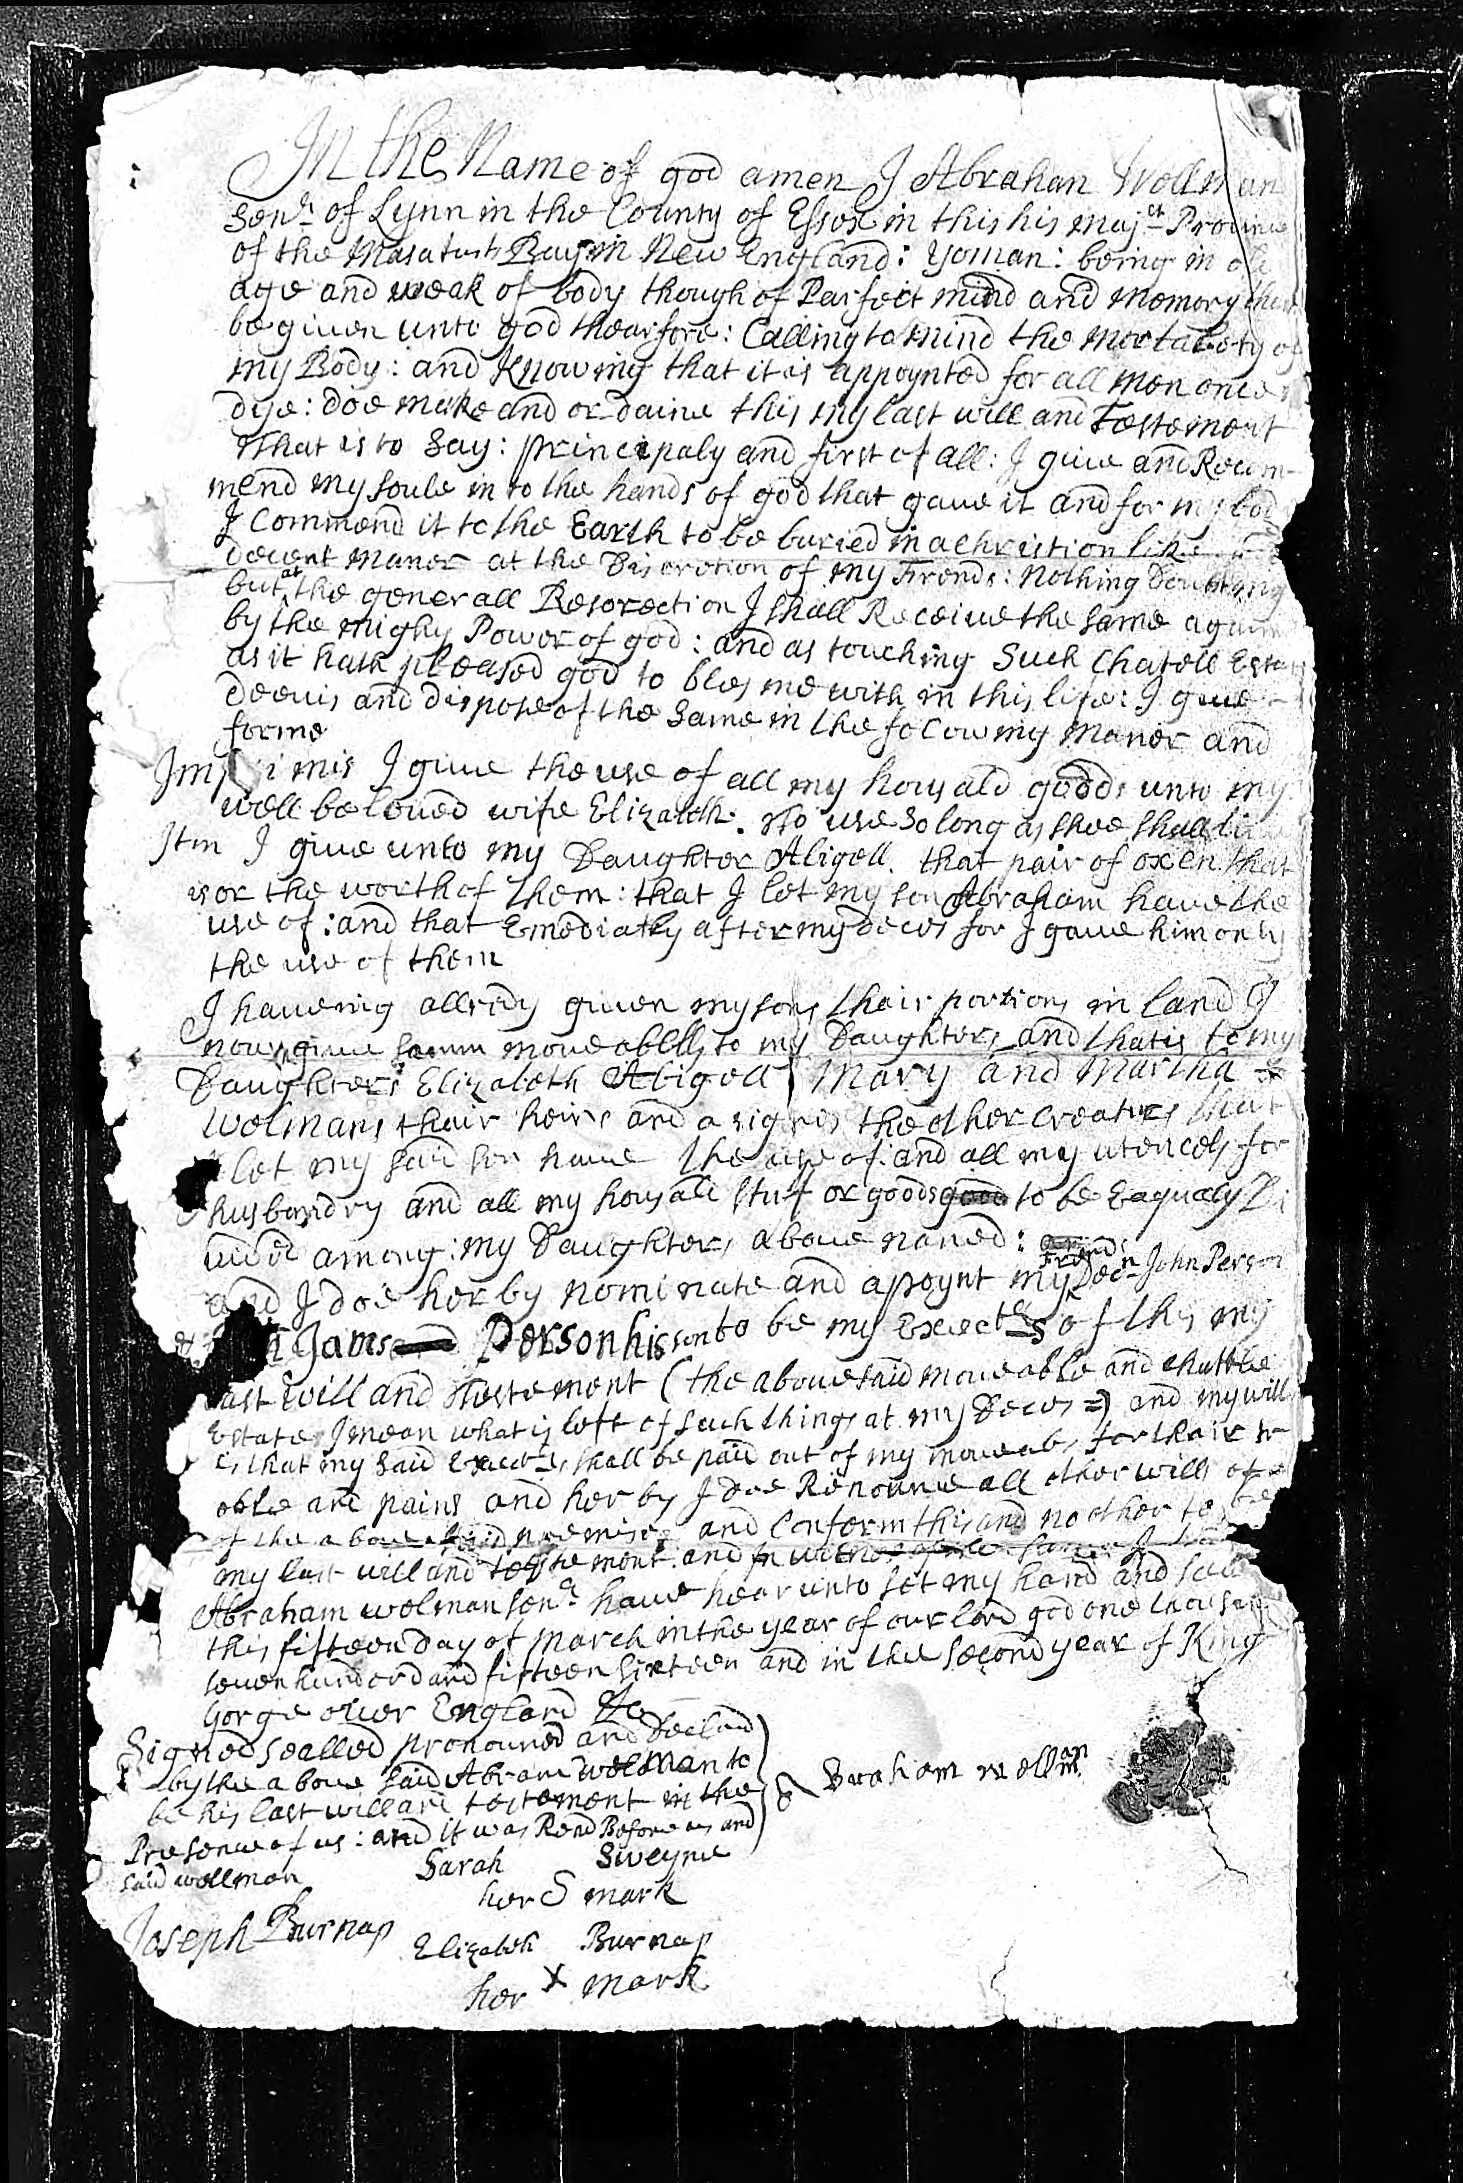 In the Name of god amen I Abraham Wellman
Senr of Lynn in the County of Essex in this his majet Province
of the Masatusts Bay in New England: yoman: being in old
age and weak of body though of Parfect mind and memory
be given unto god thearfore: Calling to mind the mortalety of
my Body: and Knowing that it is appoynted for all men once
dye: doe make and ordaine this my last will and Testement
That is to Say: principaly and first of all: I give and Recom-
mend my soule in to the hands of god that gave it and for my bod
I Commend it to the Earth to be buried in a christion like
decent maner at the Discretion of my Frends: nothing Doubting
but at the generall Resorection I shall Receive the same again
by the mighy Power of god: and as touching Such Chatell Estat
as it hath pleased god to bles me with in this life: I give
deevis and dispose of the same in the folowing maner and
forme
Imprimis I give the use of all my housald goods unto my
well beloved wife Elizabth: to use so long as shee shall
Itm I give unto my Daughter Abigell. that pair of oxen. that
is or the worth of them: that I let my son Abraham have the
use of: and that Emediatly after my deces for I gave him only
the use of them
I haveing allredy given my sons thair portions in land I
now give somm moveablls to my Daughters and that is to my
Daughters Elizabeth Abigell Mary and Martha
Wolmans thair heirs and asignes the other creaturs that
I let my said son have the use of: and all my utencels for
husbandry and all my housald stuf or goods good to be Eaqualy Di
vided among: my Daughters above named:
and I doe herby nominate and apoynt my Frend Decn John Person
& Jams Person his son to be my Exectrs of this my
last will and Testement (the above said moveable and chattle
Estate I mean what is left of such things at my Deces =) and my will
is that my said Exectrs shall be paid out of my moveabs for thair tr
oble and pains and her by I doe Renounce all other wills
of the above said premises and Conform this and no other to be
my last will and testement. and In witnes of the same I
Abraham wolman senr have hearunto set my hand and seal
this fifteen day of march in the year of our lord god one thousand
seven hunderd and fifteen sixteen and in the second year of King
Gorge over England &c
Signed sealled pronounced and Declard
by the above said Abram Wolman to
be his last will and testement in the
Presence of us: and it was Read Before us and
said wollman
Abraham wellman
Sarah Sweyne
her S mark
Joseph Burnap
Elizabeth Burnap
her X mark